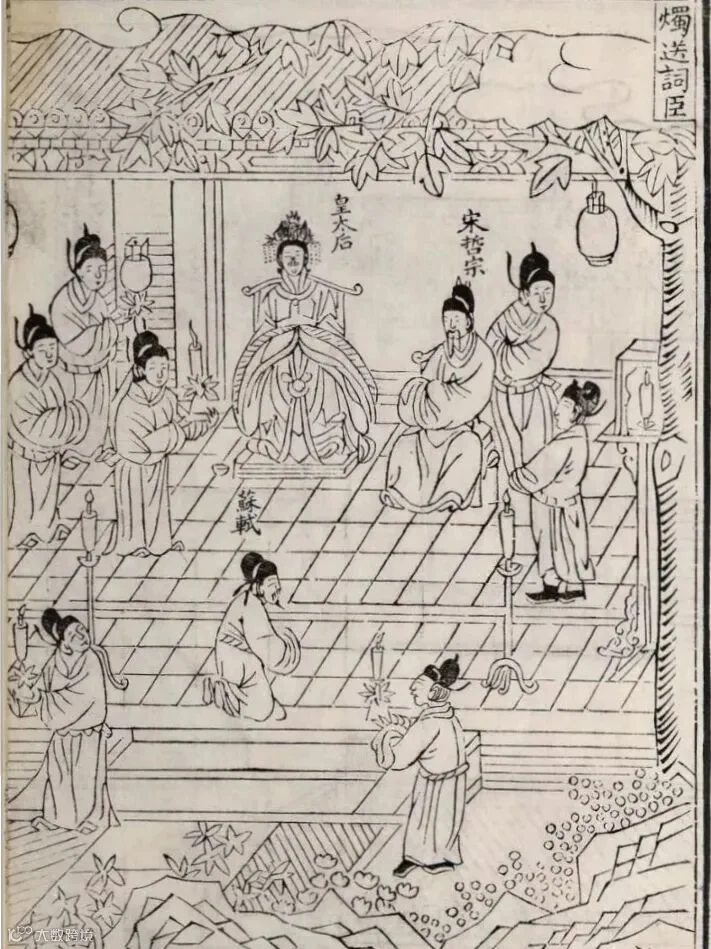 燭送詞臣
宋哲宗
皇太后
蘇軾
大数跨境